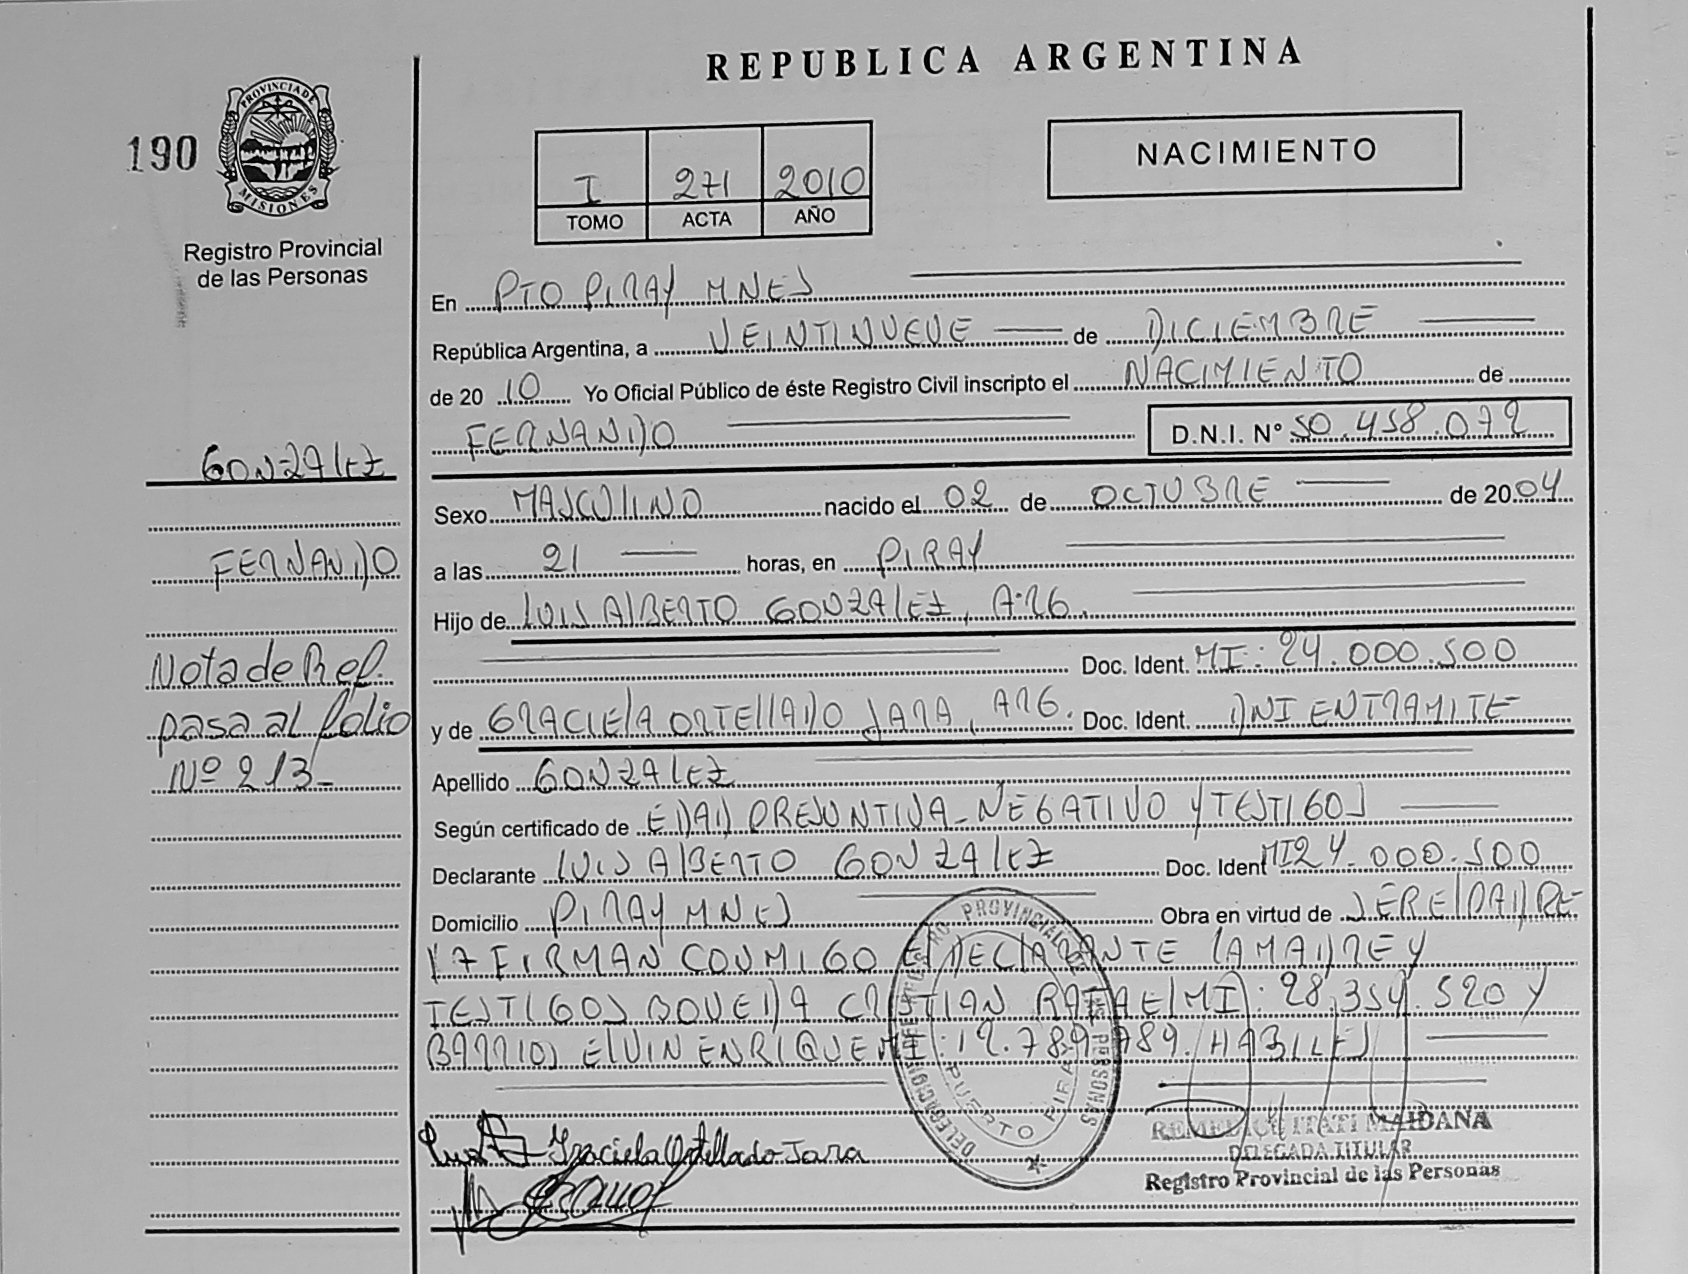 REPUBLICA ARGENTINA
190
PROVINCIA DE
MISIONES
Registro Provincial
de las Personas
I 271 2010
TOMO ACTA AÑO
NACIMIENTO
En PTO PIRAY MNES
República Argentina, a VEINTINUEVE de DICIEMBRE
de 20 10 Yo Oficial Público de éste Registro Civil inscripto el NACIMIENTO de
FERNANDO D.N.I. Nº 50.458.072
GONZALEZ
Sexo MASCULINO nacido el 02 de OCTUBRE de 2004
FERNANDO
a las 21 horas, en PIRAY
Hijo de LUIS ALBERTO GONZALEZ, ARG.
Doc. Ident. MI: 24.000.500
Nota de Ref.
pasa al folio
Nº 213-
y de GRACIELA ORTELLADO JARA, ARG. Doc. Ident. DNI EN TRAMITE
Apellido GONZALEZ
Según certificado de EDAD PRESUNTIVA-NEGATIVO Y TESTIGOS
Declarante LUIS ALBERTO GONZALEZ Doc. Ident MI 24.000.500
Domicilio PIRAY MNES Obra en virtud de SER EL PADRE
Y FIRMAN CONMIGO EL DECLARANTE LA MADRE Y
TESTIGOS BOVEDA CRISTIAN RAFAEL MI: 28.354.520 Y
BARRIOS ELVIN ENRIQUE MI: 12.789.789. HABILES
DELEGACION REGISTRO PROVINCIAL DE LAS PERSONAS
PUERTO PIRAY
Graciela Ortellado Jara
ITATI MAIDANA
DELEGADA TITULAR
Registro Provincial de las Personas